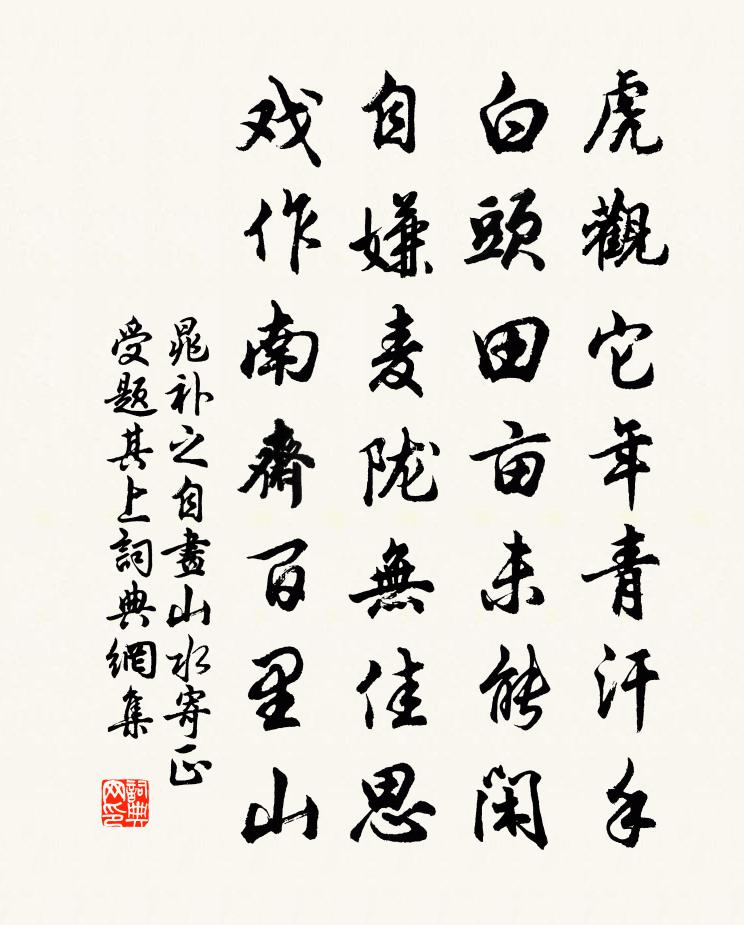 虎觀它年青汗手
白頭田亩未能閑
自嫌麦陇無佳思
戏作南齋百里山
晁补之自畫山水寄正
受题其上詞典網集
詞典网印